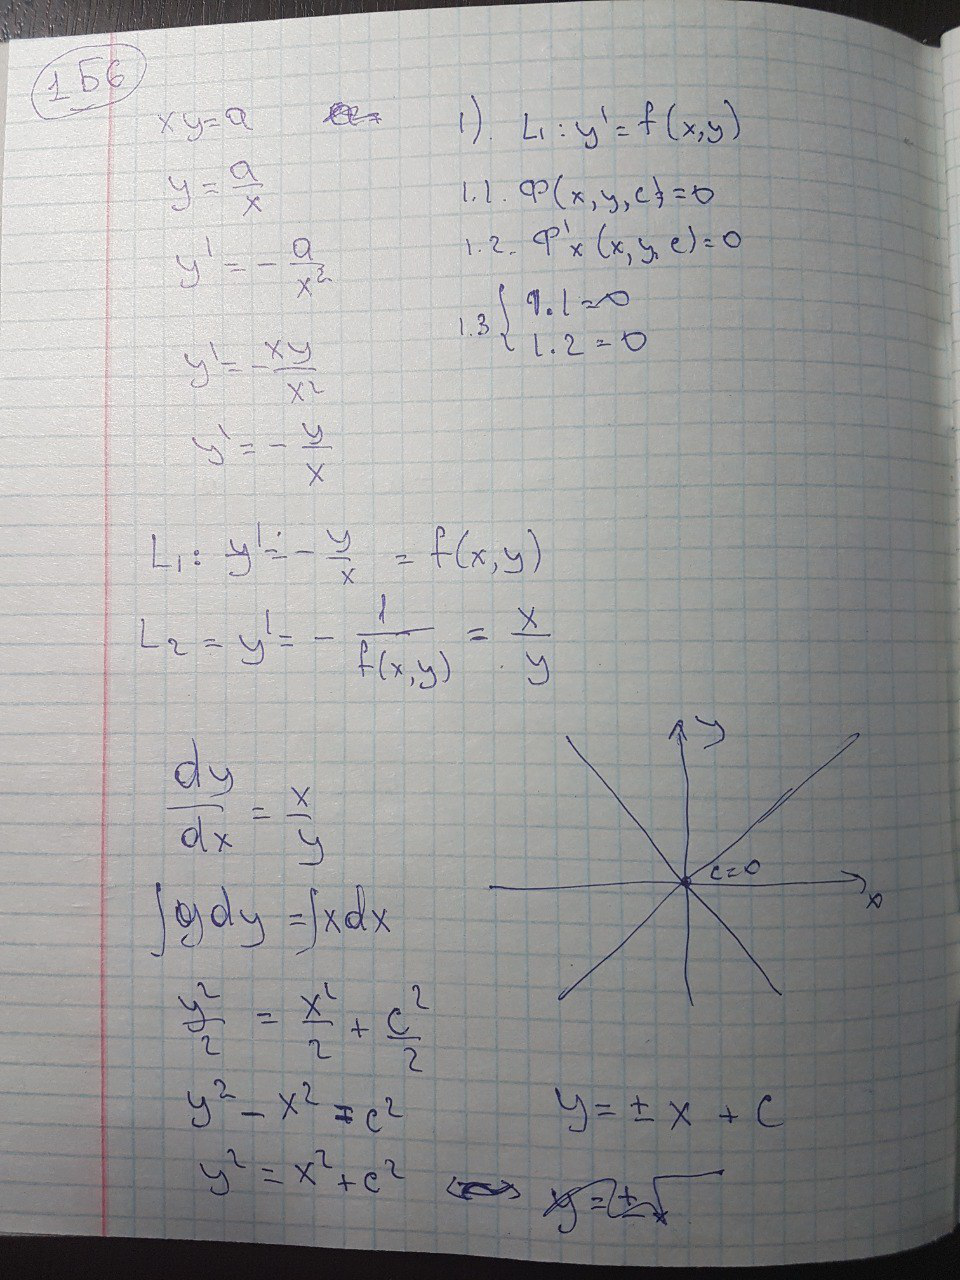 1Б6
xy=a
y = a/x
y' = - a/x²
y' = - xy/x²
y' = - y/x
1). L₁: y' = f(x,y)
1.1. Φ(x, y, c) = 0
1.2. Φ'x (x, y, c) = 0
1.3 { 1.1 = 0
1.2 = 0
L₁: y' = - y/x = f(x,y)
L₂ = y' = - 1/f(x,y) = x/y
dy/dx = x/y
∫ydy = ∫xdx
y²/2 = x²/2 + c²/2
y² - x² = c²
y² = x² + c²
y
c=0
x
y = ± x + c